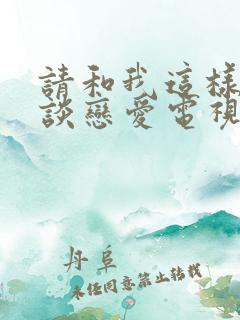 請和我這樣
談戀愛電視
丹阜
未经同意禁止转载